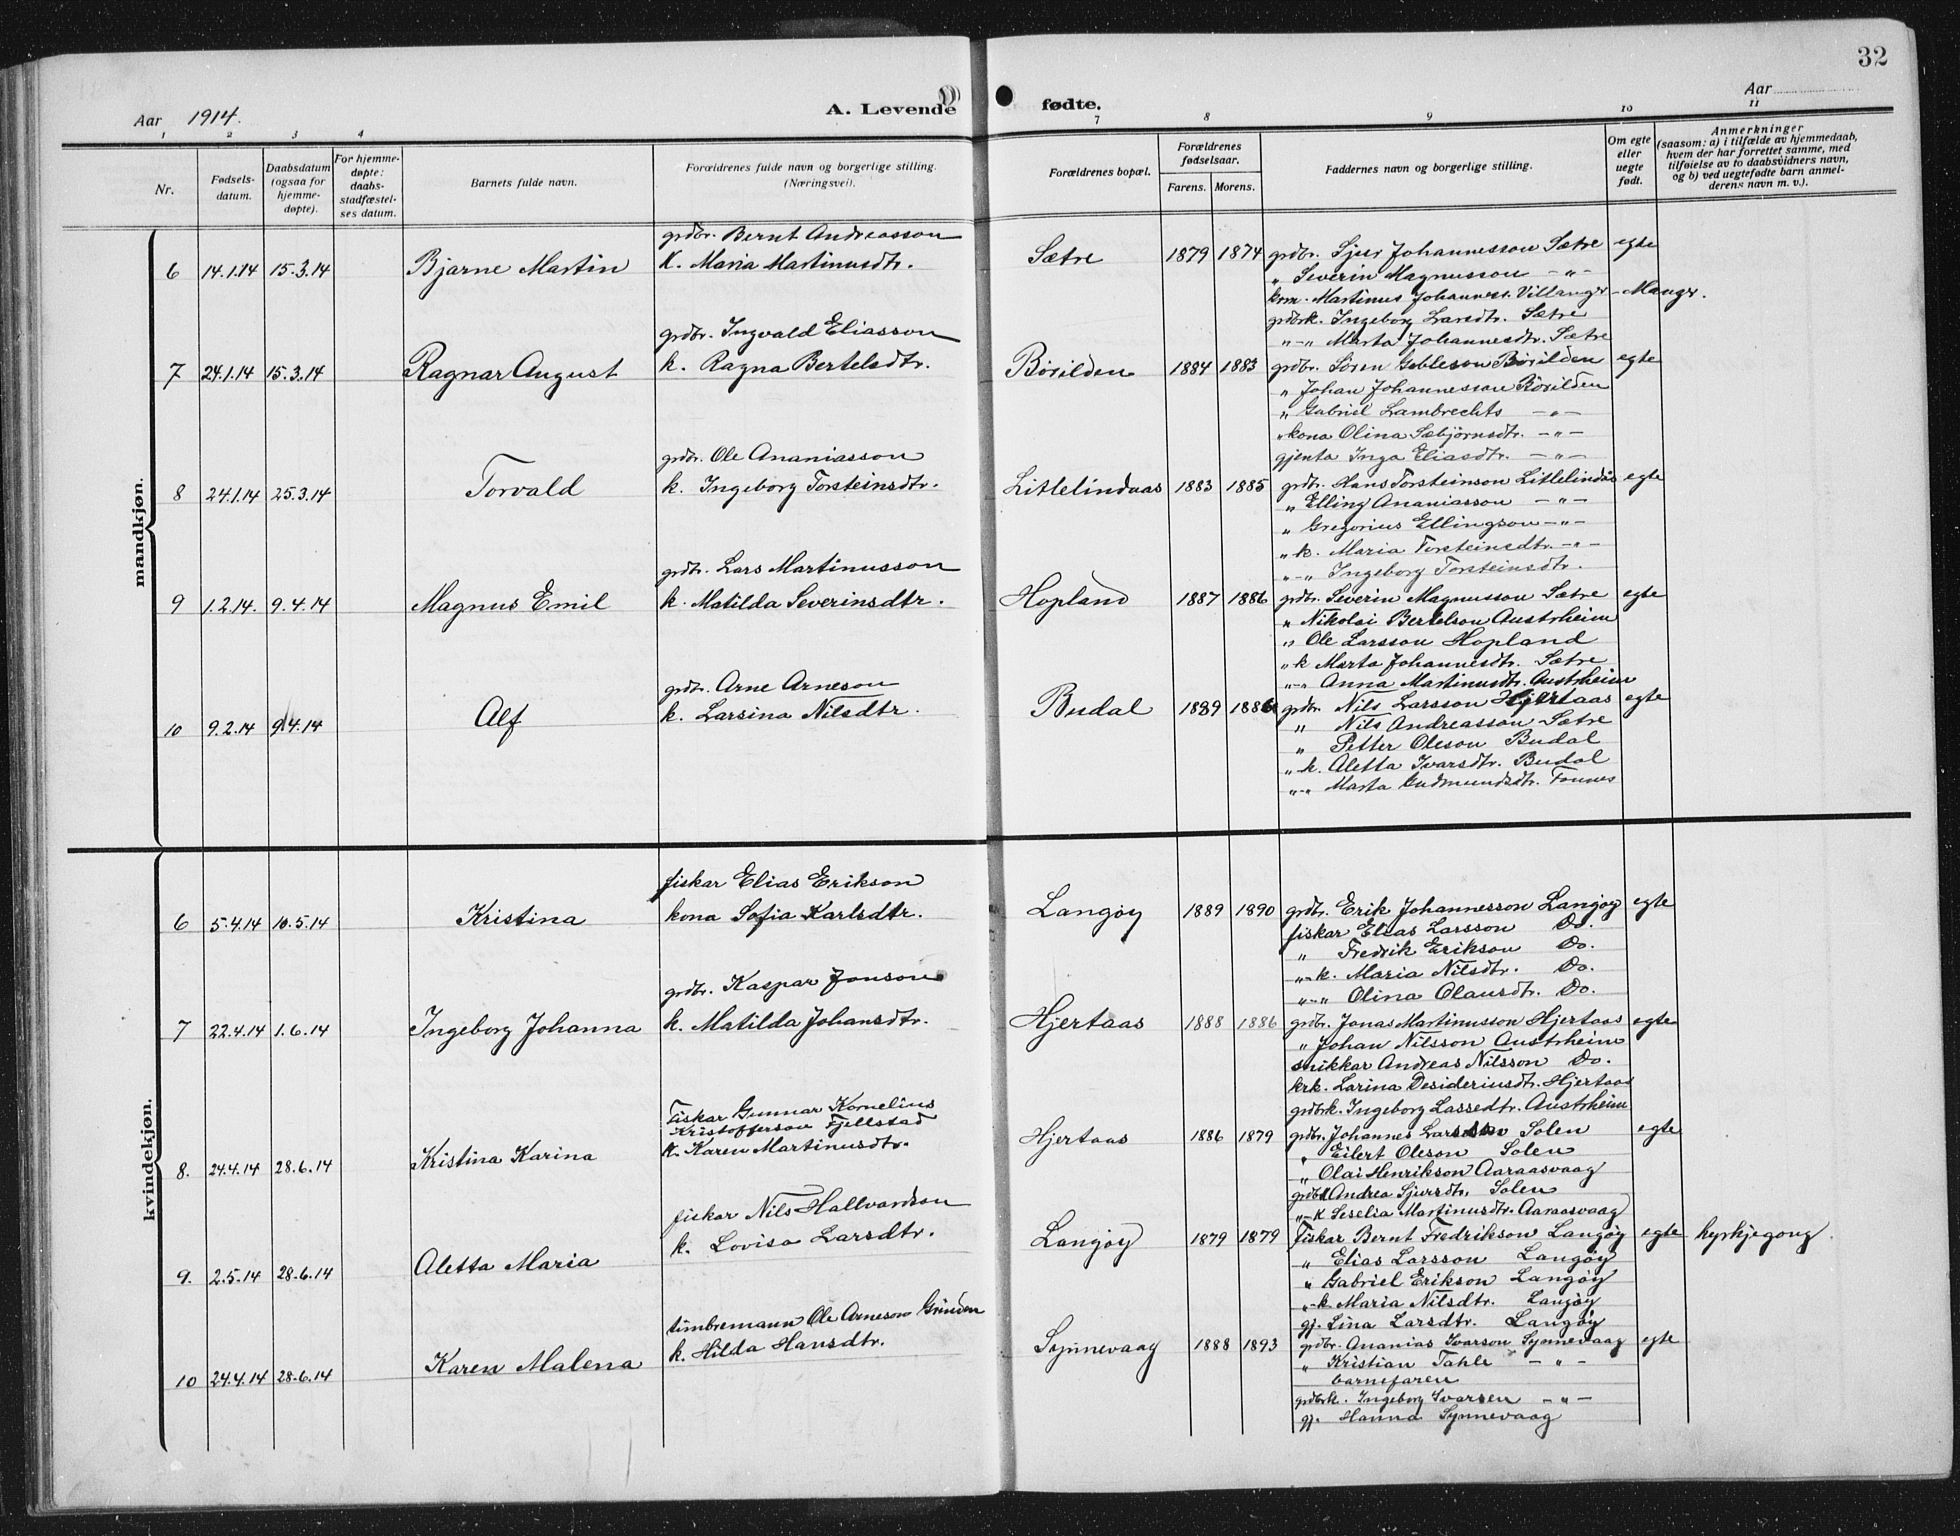 32
Aar 1914.
A. Levende fødte.
Aar
1 2 3 4 7 8 9 10 11
Nr.
Fødsels-
datum.
Daabsdatum
(ogsaa for
hjemme-
døpte).
For hjemme-
døpte:
daabs-
stadfæstel-
ses datum.
Barnets fulde navn.
Forældrenes fulde navn og borgerlige stilling.
(Næringsvei).
Forældrenes bopæl.
Forældrenes
fødselsaar.
Farens. Morens.
Faddernes navn og borgerlige stilling.
Om egte
eller
uegte
født.
Anmerkninger
(saasom: a) i tilfælde av hjemmedaab,
hvem der har forrettet samme, med
tilføielse av to daabsvidners navn,
og b) ved uegtefødte barn anmel-
derens navn m. v.).
mandkjøn.
6 14.1.14 15.3.14 Bjarne Martin
grdbr. Bernt Andreasson
k. Maria Martinusdtr.
Sætre 1879 1874
grdbr. Sjur Johannesson Sætre egte
" Severin Magnusson -"-
krm. Martinus Johanness. Villanger - Manger.
grdbrk. Ingeborg Larsdtr. Sætre
"-" Marta Johannesdtr. Sætre
7 24.1.14 15.3.14 Ragnar August
grdbr. Ingvald Eliasson
k. Ragna Bertelsdtr.
Børilden 1884 1883
grdbr. Søren Gableson Børilden egte
" Johan Johannesson Børilden
" Gabriel Lambrechts -"-
" kona Olina Sæbjørnsdtr. -"-
gjenta Inga Eliasdtr. -"-
8 24.1.14 25.3.14 Torvald
grdbr. Ole Ananiasson
k. Ingeborg Torsteinsdtr.
Litlelindaas 1883 1885
grdbr. Hans Torsteinson Litlelindås egte
" Elling Ananiasson -"-
" Gregorius Ellingson -"-
" k. Maria Torsteinsdtr. -"-
"-" Ingeborg Torsteinsdtr.
9 1.2.14. 9.4.14 Magnus Emil
grdbr. Lars Martinusson
k. Matilda Severinsdtr.
Hopland 1887 1886
grdbr. Severin Magnusson Sætre egte
" Nikolai Bertelson Austrheim
" Ole Larsson Hopland
" k Marta Johannesdtr. Sætre
"-" Anna Martinusdtr. Austrheim
10 9.2.14 9.4.14 Alf
grdbr. Arne Arneson
k. Larsina Nilsdtr.
Budal 1889 1886
grdbr. Nils Larsson Hjertaas egte
" Nils Andreasson Sætre
" Petter Oleson Budal
"-k. Aletta Ivarsdtr. Budal
"-" Marta Gudmundsdtr. Fonnes
kvindekjøn.
6 5.4.14 10.5.14 Kristina
fiskar Elias Erikson
kona Sofia Karlsdtr.
Langøy 1889 1890
grdbr. Erik Johannesson Langøy egte
fiskar Elias Larsson Do.
" Fredrik Erikson Do.
"-k. Maria Nilsdtr. Do.
"-" Olina Olausdtr. Do.
7 22.4.14 1.6.14 Ingeborg Johanna
grdbr. Kaspar Jonson
k. Matilda Johansdtr.
Hjertaas 1888 1886
grdbr. Jonas Martinusson Hjertaas egte
" Johan Nilsson Austrheim
snikkar Andreas Nilsson Do.
krk. Larina Desideriusdtr. Hjertaas
grdbrk. Ingeborg Lassedtr. Austrheim
8. 24.4.14 28.6.14 Kristina Karina
Fiskar Gunnar Kornelius
Kristofferson Fjellstad
k. Karen Martinusdtr.
Hjertaas 1886 1879
grdbr. Johannes Larsson Solen egte
" Eilert Oleson Solen
" Olai Henrikson Aaraasvaag
grdbrk Andrea Sjursdtr. Solen
"-k Seselia Martinusdtr. Aaraasvaag
9. 2.5.14 28.6.14 Aletta Maria
fiskar Nils Hallvardson
k. Lovisa Larsdtr.
Langøy 1879 1879
Fiskar Bernt Fredrikson Langøy egte kyrkjegong.
" Elias Larsson Langøy
" Gabriel Erikson Langøy
"-k Maria Nilsdtr. Langøy
gj. Lina Larsdtr. Langøy
10 24.4.14 28.6.14 Karen Malena
timbremann Ole Arneson Grinden
k. Hilda Hansdtr.
Synnevaag 1888 1893
grdbr. Ananias Ivarson Synnevaag egte
" Kristian Tahle -"-
barnefaren
grdbrk. Ingeborg Ivarsen -"-
gj. Hanna Synnevaag